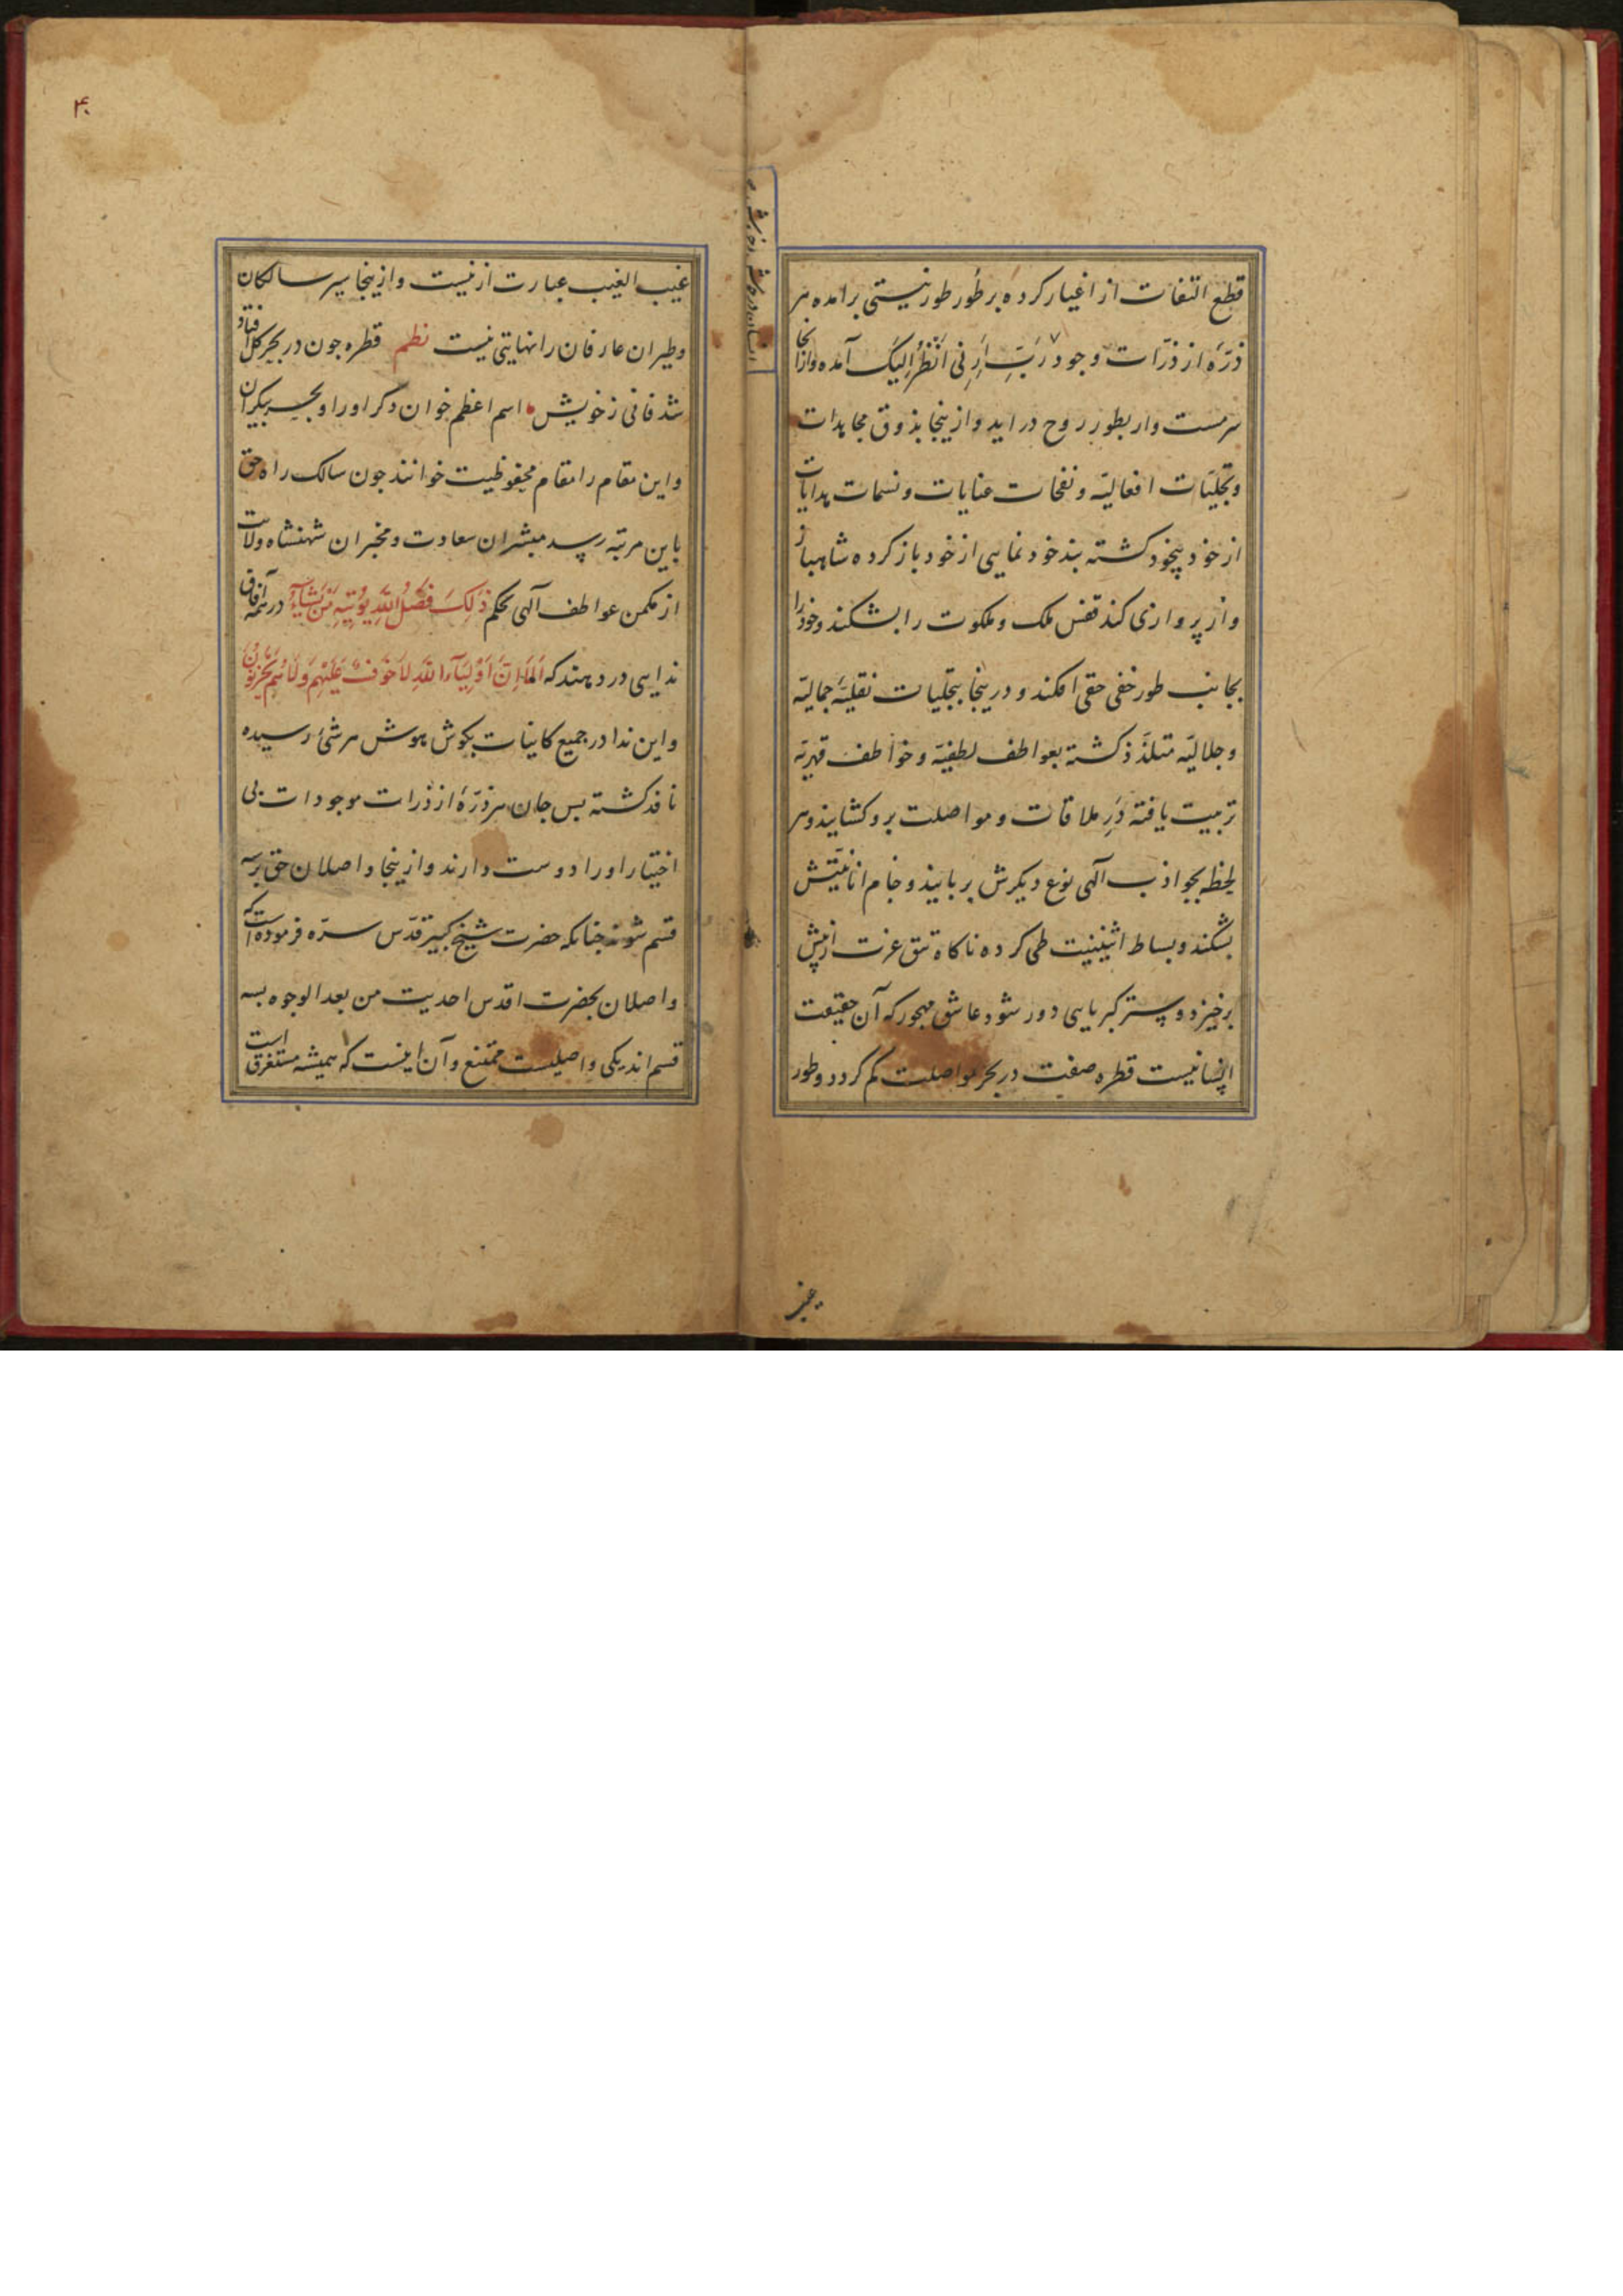 قطع التفات از اغیار کرده بر طور طور نیستی برامده هر
ذرّهٔ از ذرّات وجود رَبِّ أَرِنِی أَنْظُرْ إِلَیْکَ آمده و ازانجا
سرمست وار بطور روح دراید و ازینجا بذوق مجاهدات
وتجلیّات افعالیّه و نفخات عنایات و نسمات هدایات
از خود بیخود کشته بند خود نمایی از خود باز کرده شاهباز
وار پروازی کند قفس ملک و ملکوت را بشکند وخودرا
بجانب طور خفی حقی افکند و درینجا بتجلیات نقلیهٔ جمالیّه
وجلالیّه متلذّذ کشته بعواطف لطفیّه و خواطف قهریّه
تربیت یافته دَرِ ملاقات و مواصلت برو کشایند و هر
لحظه بجواذب آلهی نوع دیکرش بربایند و جام انانیّتش
بشکند و بساط اثنینیت طی کرده ناکاه تتق عزت از پیش
برخیزد و ستر کبریایی دور شود عاشق مهجور که آن حقیقت
انسانیست قطره صفت در بحر مواصلت کم کردد و طور
غیب
۴۰
غیب الغیب عبارت ازنیست وازینجا سیر سالکان
وطیران عارفان را نهایتی نیست نظم قطره جون در بحر کل افتاد
شد فانی زخویش اسم اعظم خوان دکر اورا و بحر بیکران
واین مقام را مقام محفوظیت خوانند جون سالک راه حق
باین مرتبه رسد مبشران سعادت و مخبران شهنشاه ولایت
از مکمن عواطف آلهی بحکم ذَلِکَ فَضْلُ اللَّهِ یُؤْتِیهِ مَنْ یَشَآءُ در همه آفاق
ندایی در دهند که أَلَا إِنَّ أَوْلِیَآءَ اللَّهِ لَا خَوْفٌ عَلَیْهِمْ وَلَا هُمْ یَحْزَنُونَ
واین ندا در جمیع کاینات بکوش هوش هر شئ رسیده
نافذ کشته بس جان هر ذرّهٔ از ذرات موجودات بی
اختیار اورا دوست دارند و ازینجا واصلان حق برسه
قسم شوند جنانکه حضرت شیخ کبیر قدّس سرّه فرموده است که
واصلان بحضرت اقدس احدیت من بعد الوجوه بسه
قسم اند یکی واصلیست ممتنع و آن اینست که همیشه مستغرق است